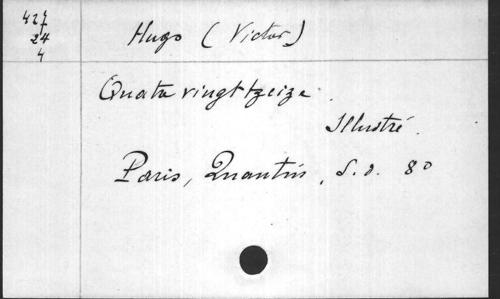 427
24
4
Hugo (Victor)
Quatre vingt treize.
Illustré.
Paris, Quantin, S. d. 8°